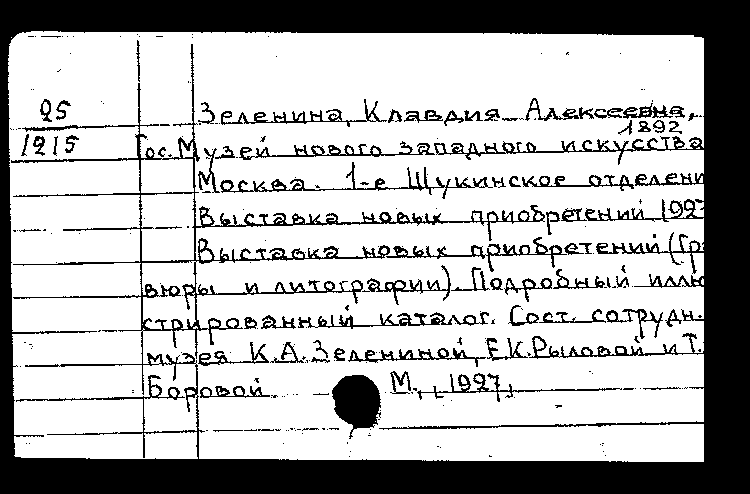 25
1215
Зеленина, Клавдия Алексеевна,
1892
Гос. Музей нового западного искусства
Москва. 1-е Щукинское отделени
Выставка новых приобретений 1927
Выставка новых приобретений (Гра
вюры и литографии). Подробный иллю
стрированный каталог. Сост. сотрудн.
музея К.А. Зелениной, Е.К. Рыловой и Т.
Боровой. М., [1927]